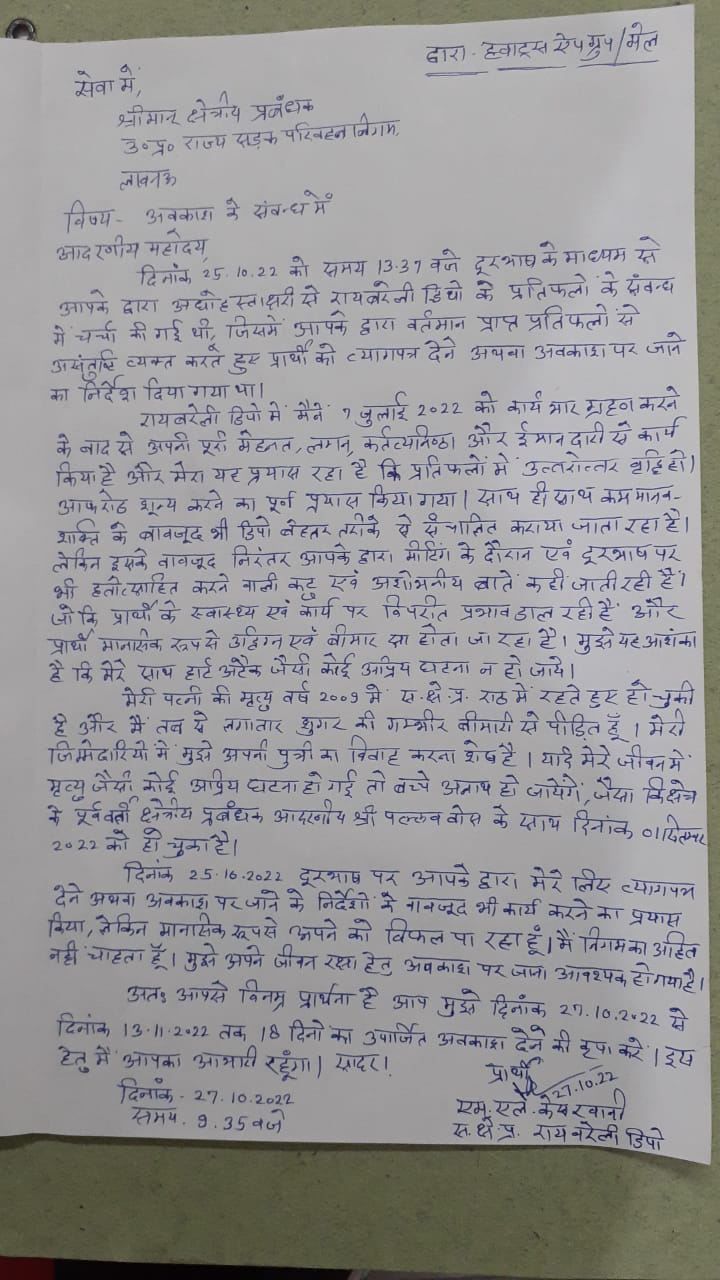 द्वारा- व्हाट्स ऐप ग्रुप/मेल
सेवा में,
श्रीमान क्षेत्रीय प्रबंधक
उ०प्र० राज्य सड़क परिवहन निगम,
लखनऊ
विषय- अवकाश के संबन्ध में
आदरणीय महोदय,
दिनांक 25.10.22 को समय 13.37 बजे दूरभाष के माध्यम से
आपके द्वारा अद्योहस्ताक्षरी से रायबरेली डिपो के प्रतिफलों के संबन्ध
में चर्चा की गई थी, जिसमें आपके द्वारा वर्तमान प्राप्त प्रतिफलों से
असंतुष्टि व्यक्त करते हुए प्रार्थी को त्यागपत्र देने अथवा अवकाश पर जाने
का निर्देश दिया गया था।
रायबरेली डिपो में मैंने 7 जुलाई 2022 को कार्य भार ग्रहण करने
के बाद से अपनी पूरी मेहनत, लगन, कर्तव्यनिष्ठा और ईमानदारी से कार्य
किया है और मेरा यह प्रयास रहा है कि प्रतिफलों में उत्तरोत्तर वृद्धि हो।
आफरोड शून्य करने का पूर्ण प्रयास किया गया। साथ ही साथ कम मानव-
शक्ति के बावजूद भी डिपो बेहतर तरीके से संचालित कराया जाता रहा है।
लेकिन इसके बावजूद निरंतर आपके द्वारा मीटिंग के दौरान एवं दूरभाष पर
भी हतोत्साहित करने वाली कटु एवं अशोभनीय बातें कही जाती रही हैं।
जो कि प्रार्थी के स्वास्थ्य एवं कार्य पर विपरीत प्रभाव डाल रही हैं और
प्रार्थी मानसिक रूप से उद्विग्न एवं बीमार सा होता जा रहा है। मुझे यह आशंका
है कि मेरे साथ हार्ट अटैक जैसी कोई अप्रिय घटना न हो जाये।
मेरी पत्नी की मृत्यु वर्ष 2009 में स.क्षे.प्र. राठ में रहते हुए हो चुकी
है और मैं तब से लगातार शुगर की गम्भीर बीमारी से पीड़ित हूँ। मेरी
जिम्मेदारियों में मुझे अपनी पुत्री का विवाह करना शेष है। यदि मेरे जीवन में
मृत्यु जैसी कोई अप्रिय घटना हो गई तो बच्चे अनाथ हो जायेंगे, जैसा कि क्षेत्र
के पूर्ववर्ती क्षेत्रीय प्रबंधक आदरणीय श्री पल्लव बोस के साथ दिनांक 01 सितम्बर
2022 को हो चुका है।
दिनांक 25.10.2022 दूरभाष पर आपके द्वारा मेरे लिए त्यागपत्र
देने अथवा अवकाश पर जाने के निर्देशों के बावजूद भी कार्य करने का प्रयास
किया, लेकिन मानसिक रूप से अपने को विफल पा रहा हूँ। मैं निगम का अहित
नहीं चाहता हूँ। मुझे अपने जीवन रक्षा हेतु अवकाश पर जाना आवश्यक हो गया है।
अतः आपसे विनम्र प्रार्थना है आप मुझे दिनांक 27.10.2022 से
दिनांक 13.11.2022 तक 18 दिनों का उपार्जित अवकाश देने की कृपा करें। इस
हेतु मैं आपका आभारी रहूँगा। सादर!
प्रार्थी
27.10.22
दिनांक- 27.10.2022
एम. एल. केसरवानी
समय. 9.35 बजे
स.क्षे.प्र. रायबरेली डिपो